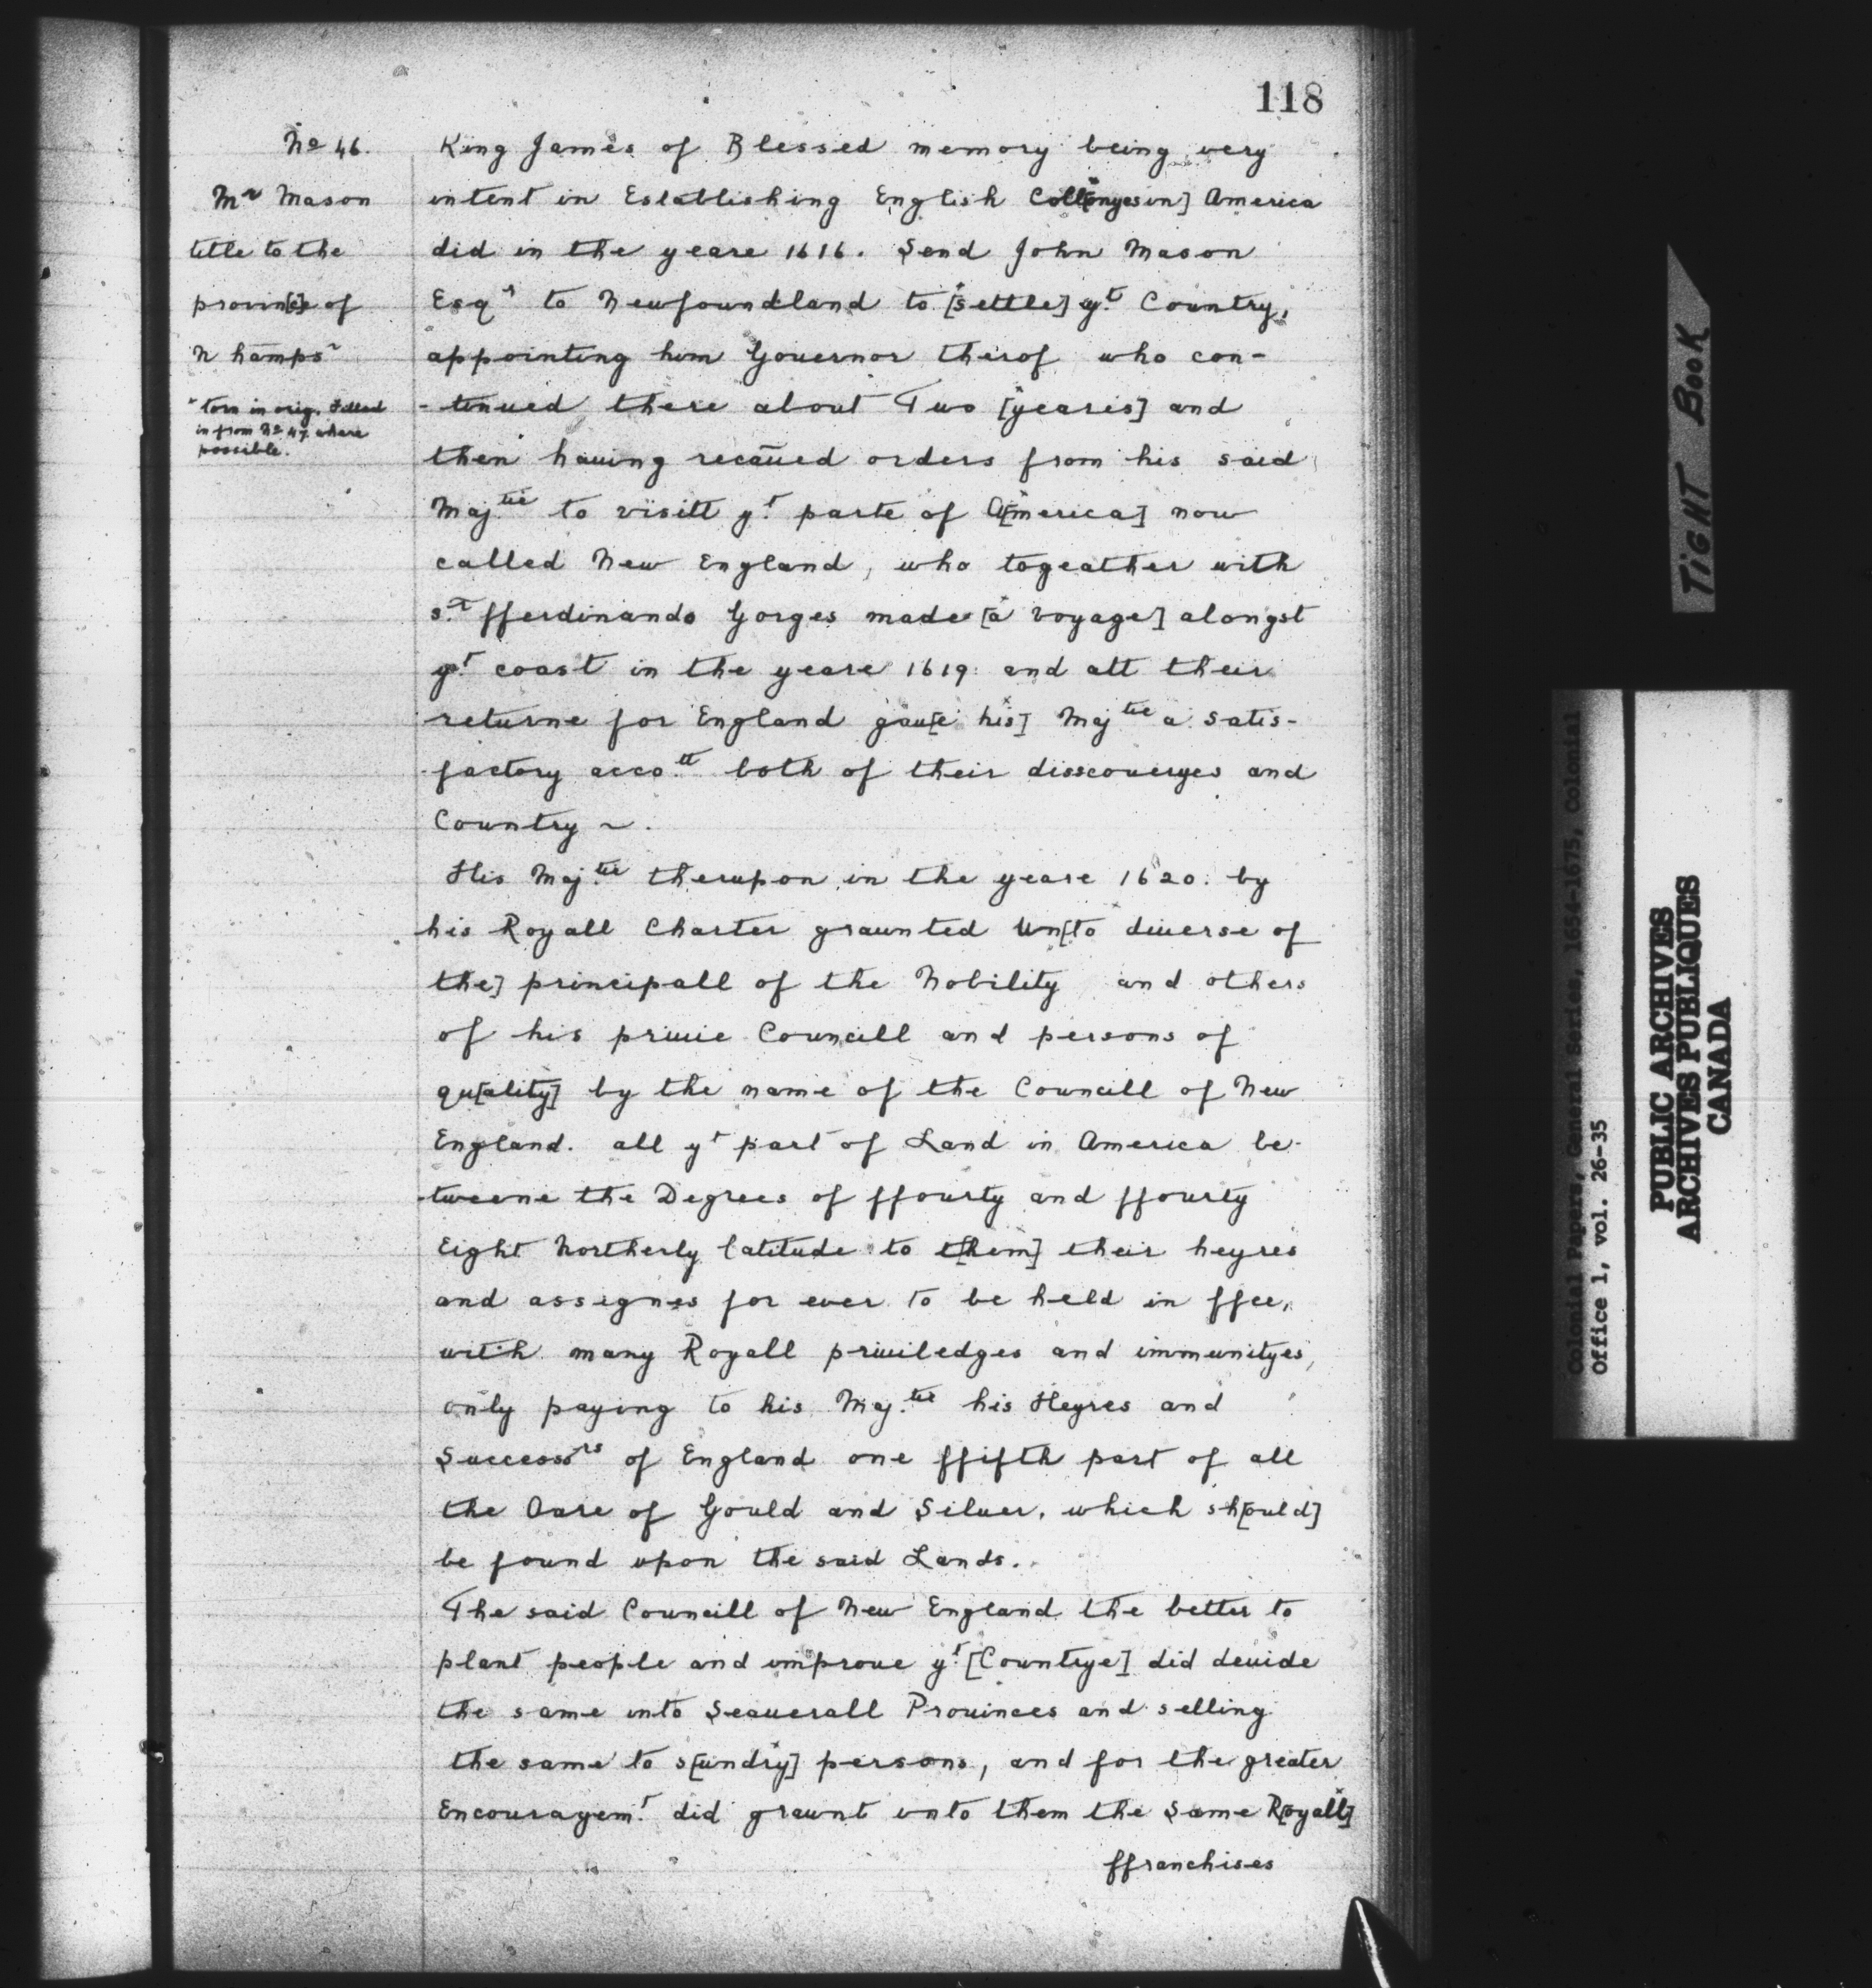 118
No 46.
Mr Mason
title to the
provin[c]e of
N hamps~
* torn in orig. Filled
in from No 47 where
possible.
King James of Blessed memory being very
intent in Establishing English Coll[onyes in] America
did in the yeare 1616. Send John Mason
Esqr to Newfoundland to *[settle] yt Country,
appointing him Gouernor therof who con-
-tinued there about Two *[yeares] and
then hauing receiued orders from his said
Maj.tie to visitt yt parte of A*[merica] now
called New England, who togeather with
sr fferdinando Gorges made [*a voyage] alongst
yt coast in the yeare 1619: and att their
returne for England gau[*e his] Maj.tie a satis-
factory acco.tt both of their disscoueryes and
Country ~.
His Maj.tie therupon in the yeare 1620. by
his Royall Charter graunted Un[to diuerse of
the] principall of the Nobility and others
of his priuie Councill and persons of
qu[ality] by the name of the Councill of New
England. all yt part of Land in America be-
-tweene the Degrees of ffourty and ffourty
Eight Northerly latitude to t[hem] their heyres
and assignes for euer to be held in ffee,
with many Royall priuiledges and immunityes,
only paying to his Maj.tie his Heyres and
Successors of England one ffifth part of all
the Oare of Gould and Siluer, which sh[ould]
be found upon the said Lands.
The said Councill of New England the better to
plant people and improue yt [Countrye] did deuide
the same into Seauerall Prouinces and selling
the same to s[undry] persons, and for the greater
Encouragem.t did graunt unto them the same R[oyall]
ffranchises
TIGHT BOOK
Colonial Papers, General Series, 1654-1675, Colonial
Office 1, vol. 26-35
PUBLIC ARCHIVES
ARCHIVES PUBLIQUES
CANADA